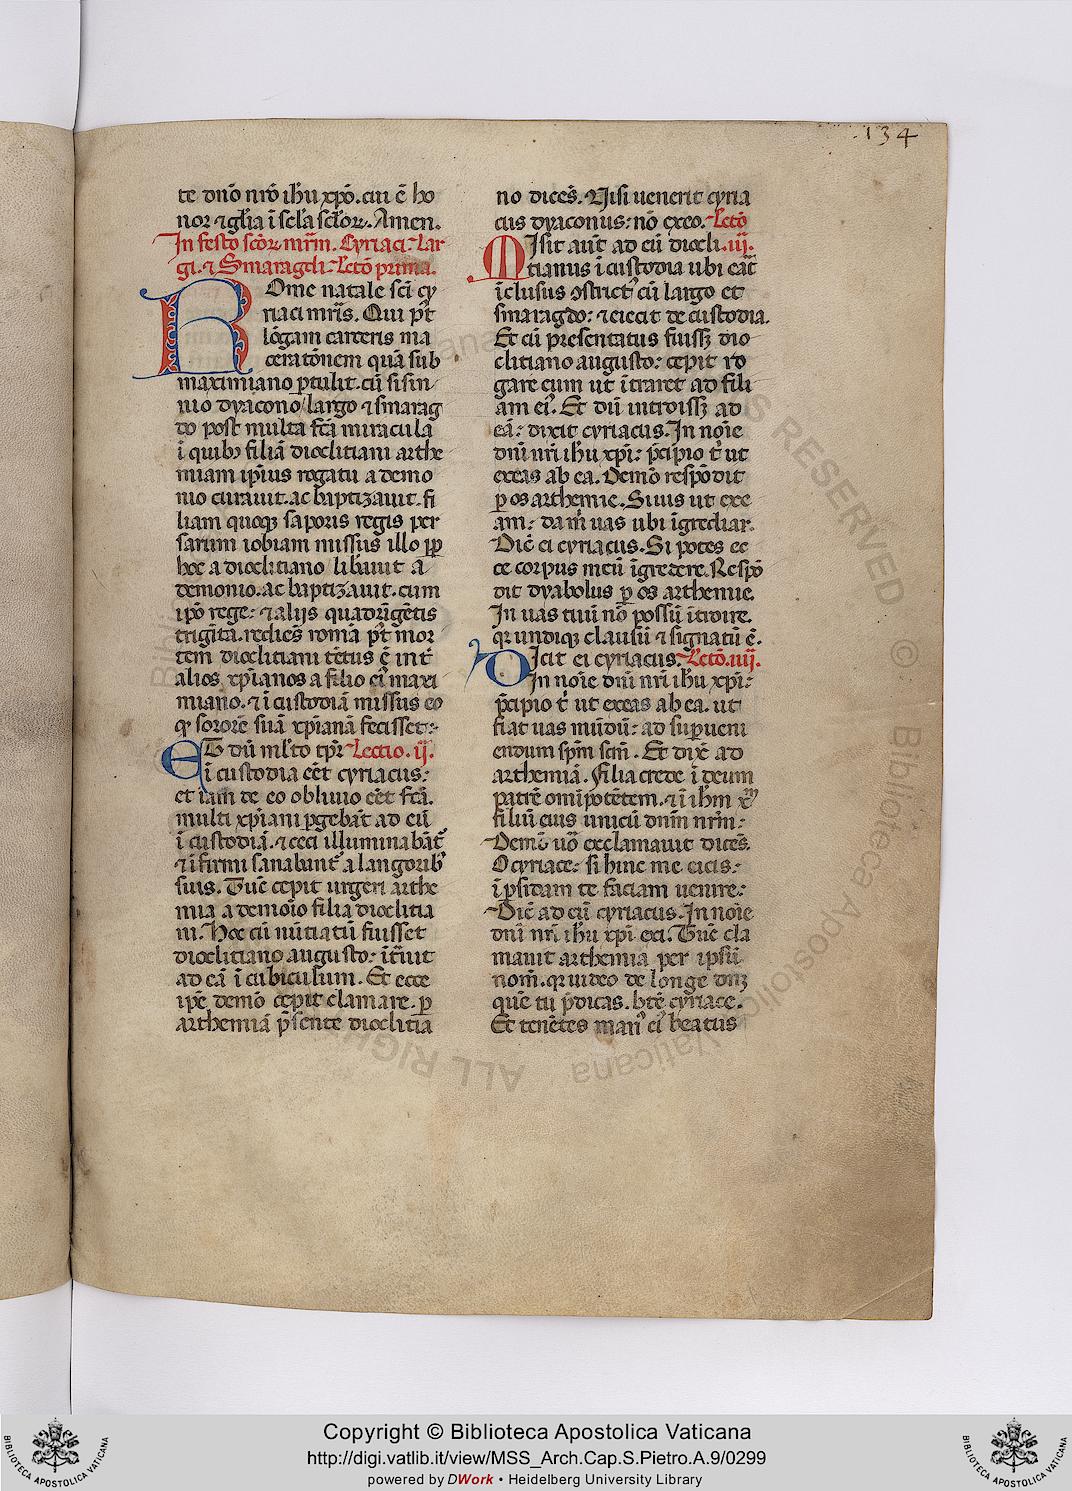 134
te dño nr̃o ihũ xp̃o. cui ẽ ho
nor ⁊ gl̃ia ĩ sc̃la sc̃lor̃. Amen.
In festo sc̃or̃ mr̃m. Cyriaci. Lar
gi. ⁊ Smaragdi. Lectõ prima.
ROme natale sc̃i cy
riaci mr̃is. Qui p̃t
lõgam carceris ma
ceratõnem quã sub
maximiano ꝑtulit. cũ sisin
nio dyacono largo ⁊ smarag
do post multa fc̃a miracula
ĩ quibꝰ filiã dioclitiani arthe
miam ip̃ius rogatu a demo
nio curauit. ac baptizauit. fi
liam quoqꝫ saporis regis per
sarum iobiam missus illo ꝓp̃
hoc a dioclitiano lib̃auit a
demonio. ac baptizauit. cum
ip̃o rege. ⁊ alijs quadrĩgẽtis
trigĩta. rediẽs romã p̃t mor
tem dioclitiani tẽtus ẽ int̃
alios xp̃ianos a filio eiꝰ maxi
miano. ⁊ ĩ custodiã missus eo
qꝭ sororẽ suã xp̃ianã fecisset.
ET dũ ml̃to tp̃r Lectio. ij.
ĩ custodia eẽt cyriacus.
et iam de eo obliuio eẽt fc̃a.
multi xp̃iani ꝑgebãt ad eũ
ĩ custodiã. ⁊ ceci illuminabãt᷑
⁊ ĩfirmi sanabunt᷑ a langoribꝰ
suis. Tũc cepit urgeri arthe
mia a demoĩo filia dioclitia
ni. Hoc cũ nũtiatũ fuisset
dioclitiano augusto. ĩt̃uit
ad eã ĩ cubiculum. Et ecce
ip̃e demõ cepit clamare. ꝑ
arthemiã p̃sente dioclitia
no dicẽs. Nisi uenerit cyria
cus dyaconus. nõ exeo. Lectõ
MIsit aũt ad eũ diocli. iij.
tianus ĩ custodia ubi erat̃
ĩclusus ꝯstrictꝰ cũ largo et
smaragdo. ⁊ eiecit de custodia.
Et cũ presentatus fuissꝫ dio
clitiano augusto. cepit ro
gare eum ut ĩtraret ad fili
am eiꝰ. Et dũ introissꝫ ad
eã. dixit cyriacus. In noĩe
dñi nr̃i ihũ xp̃i. p̃cipio t̃ ut
exeas ab ea. Demõ respõdit
ꝑ os arthemie. Si uis ut exe
am. da m̃ uas ubi ĩgrediar.
Dic̃ ei cyriacus. Si potes ec
ce corpus meũ ĩgredere. Respõ
dit dyabolus ꝑ os arthemie.
In uas tuũ nõ possũ ĩtroire.
qꝛ undiqꝫ clausũ ⁊ signatũ ẽ.
DIcit ei cyriacus. Lectõ. iiij.
In noĩe dñi nr̃i ihũ xp̃i.
p̃cipio t̃ ut exeas ab ea. ut
fiat uas mũdũ. ad suꝑueni
endum sp̃m sc̃m. Et dix̃ ad
arthemiã. Filia crede ĩ deum
patrẽ omĩpotẽtem. ⁊ ĩ ihm̃ xm̃
filiũ eius unicũ dnm̃ nrm̃.
Demõ u̾o exclamauit dicẽs.
O cyriace. si hinc me eicis.
ĩ ꝑsidam te faciam uenire.
Dic̃ ad eũ cyriacus. In noĩe
dñi nr̃i ihũ xp̃i exi. Tũc cla
mauit arthemia per ipsũ
nom̃. qꝛ uideo de longe dnꝫ
quẽ tu p̃dicas. btẽ cyriace.
Et tenẽtes manꝰ eiꝰ beatus
© Biblioteca Apostolica Vaticana ALL RIGHTS RESERVED
Copyright © Biblioteca Apostolica Vaticana
http://digi.vatlib.it/view/MSS_Arch.Cap.S.Pietro.A.9/0299
powered by DWork • Heidelberg University Library
BIBLIOTECA APOSTOLICA VATICANA
BIBLIOTECA APOSTOLICA VATICANA